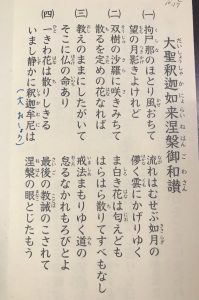 大聖釈迦如来涅槃御和讃
だいしょうしゃかにょらいねはんごわさん
(一) 拘尸那のほとり風おちて
流れはむせぶ如月の
望の月影きよけれど
儚く雲にかげりゆく
(二) 双樹の沙羅に咲きみちて
ま白き花は匂えども
散るを定めの花なれば
はらはら散りてすべもなし
(三) 教えのままにしたがいて
戒法まもりゆく道の
そこに仏の命あり
怠るなかれもろびとよ
(四) 一きわ花は散りしきる
最後の教誡のこされて
いまし静かに釈迦牟尼は
涅槃の眼とじたもう